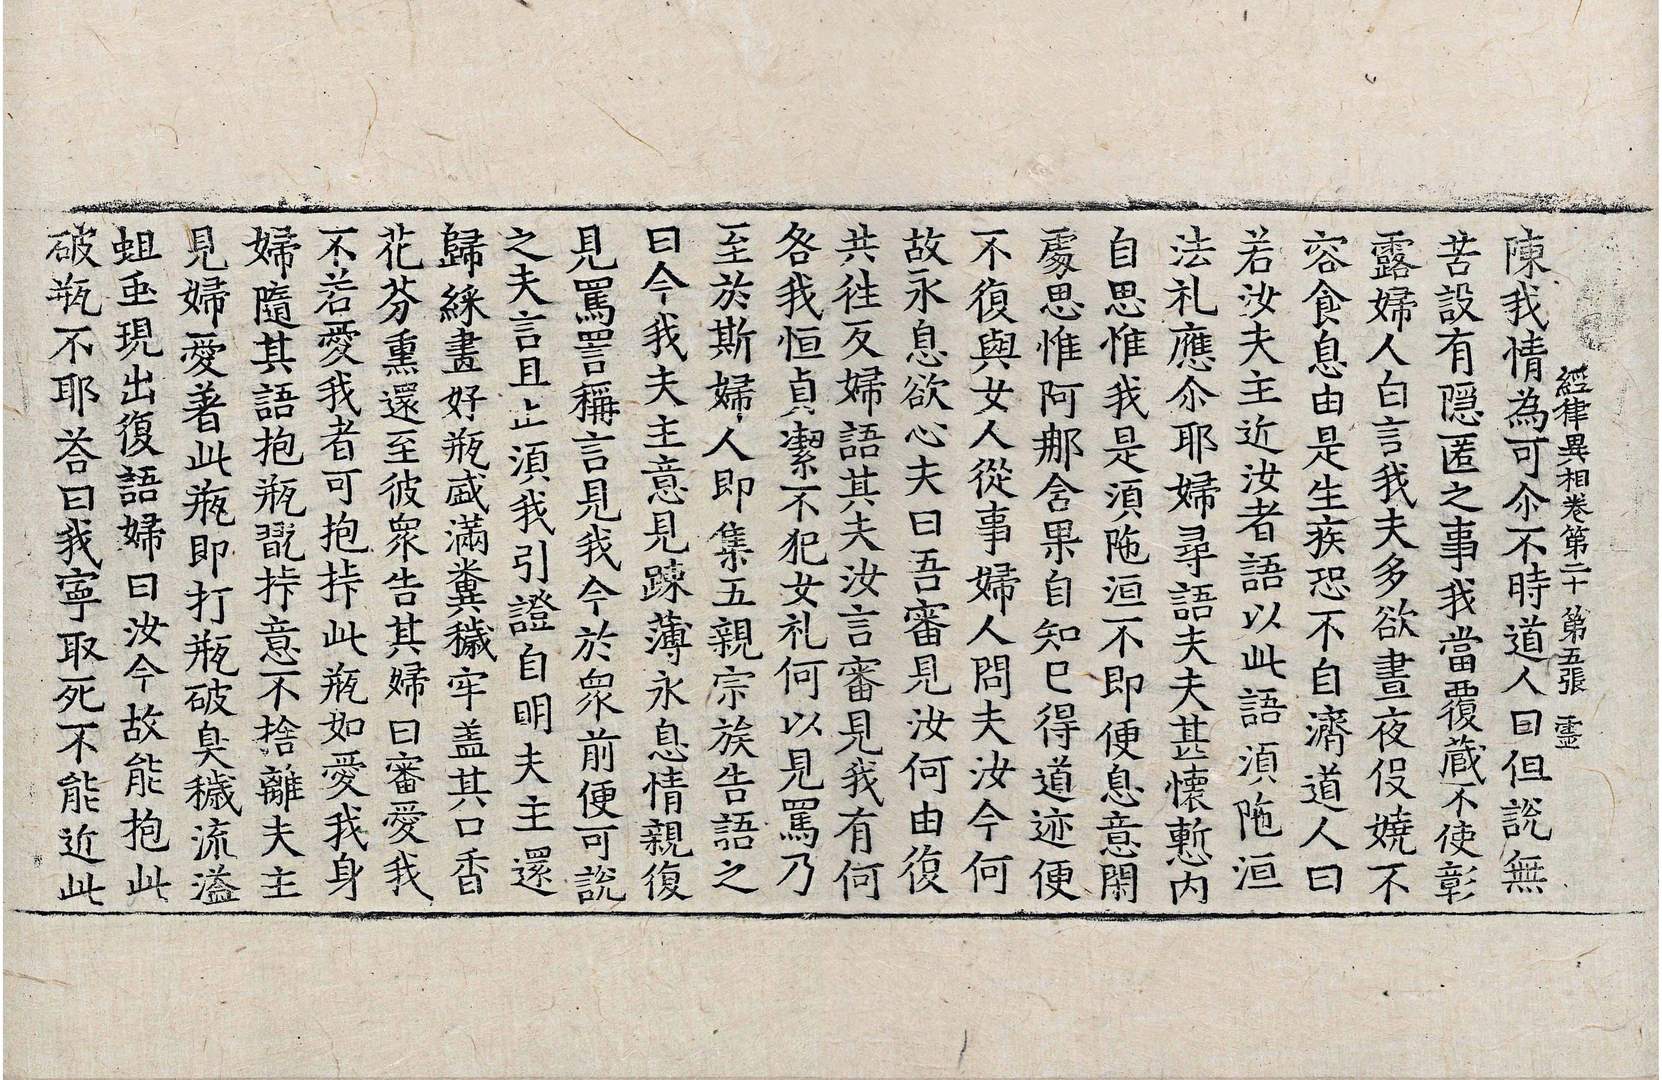 經律異相卷第二十 第五張 靈
陳我情為可尒不時道人曰但說無
苦設有隱匿之事我當覆藏不使彰
露婦人白言我夫多欲晝夜伇嬈不
容食息由是生疾恐不自濟道人曰
若汝夫主近汝者語以此語湏陁洹
法礼應尒耶婦尋語夫夫甚懷慙內
自思惟我是湏陁洹不即便息意閑
處思惟阿那含果自知已得道迹便
不復與女人從事婦人問夫汝今何
故永息欲心夫曰吾審見汝何由復
共徃反婦語其夫汝言審見我有何
咎我恒貞潔不犯女礼何以見罵乃
至於斯婦人即集五親宗族告語之
曰今我夫主意見踈薄永息情親復
見罵詈稱言見我今於衆前便可說
之夫言且止湏我引證自明夫主還
歸綵畫好瓶盛滿糞穢牢盖其口香
花芬熏還至彼衆告其婦曰審愛我
不若愛我者可抱持此瓶如愛我身
婦隨其語抱瓶翫持意不捨離夫主
見婦愛著此瓶即打瓶破臭穢流溢
蛆虫現出復語婦曰汝今故能抱此
破瓶不耶荅曰我寧取死不能近此